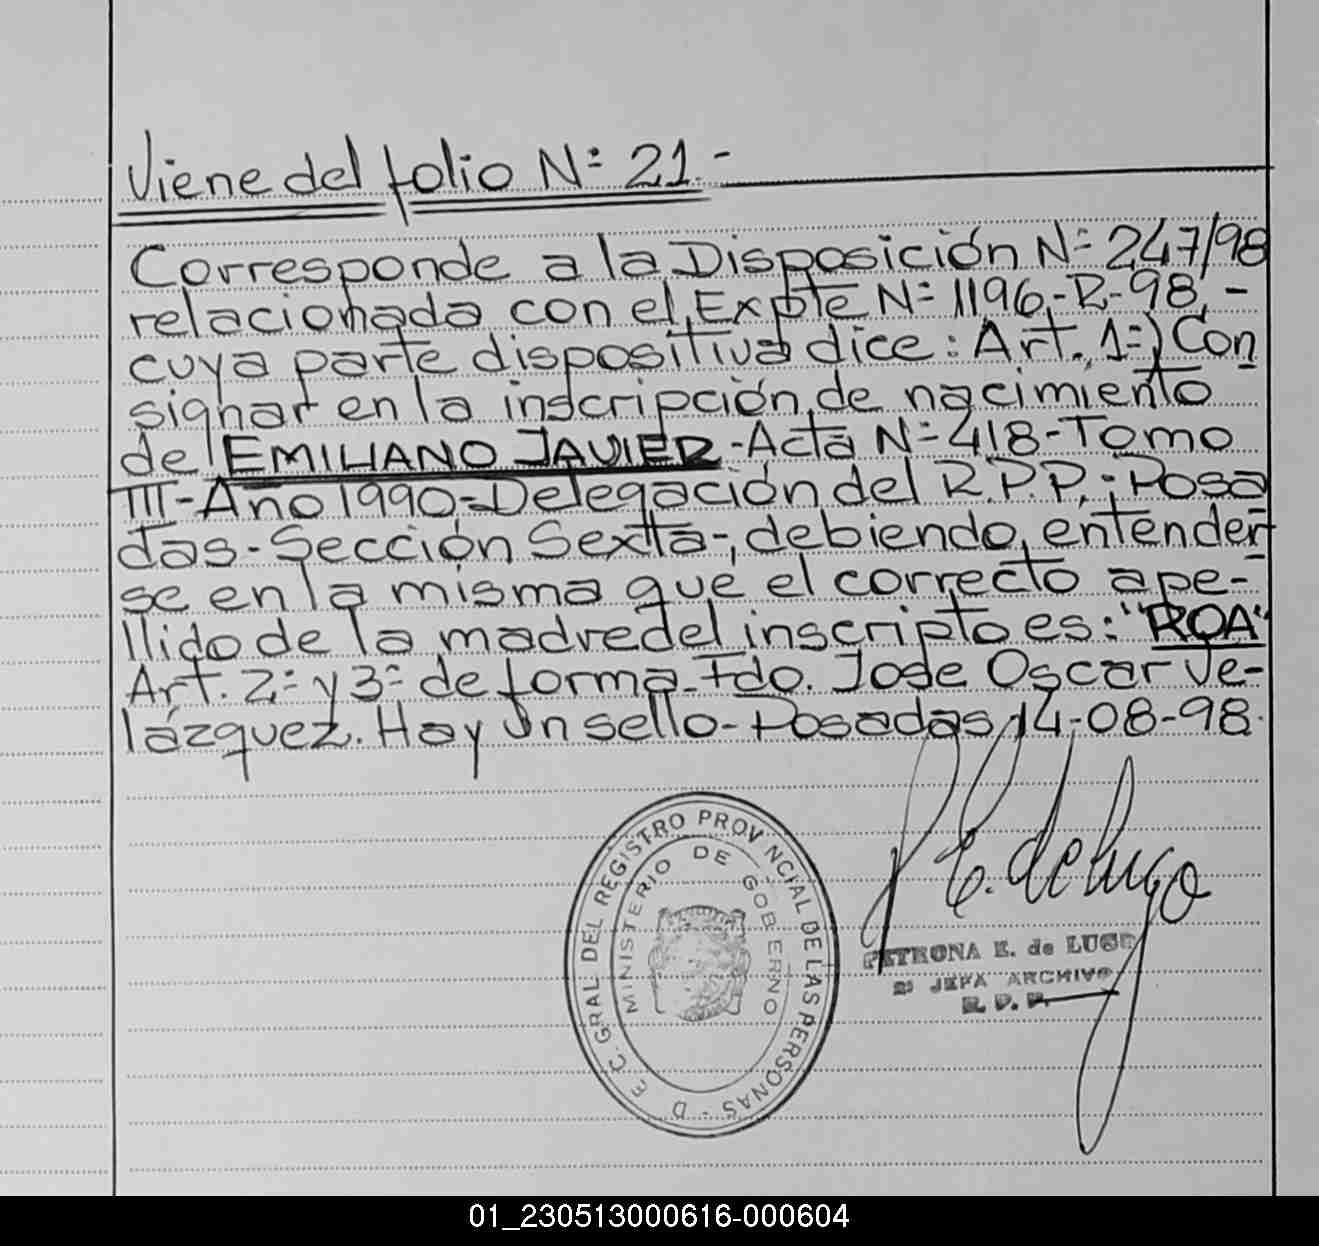 Viene del folio Nº 21.-
Corresponde a la Disposición Nº 247/98
relacionada con el Expte Nº 1196-R-98.-
cuya parte dispositiva dice: Art. 1º) Con
signar en la inscripción de nacimiento
de EMILIANO JAVIER-Acta Nº 418-Tomo
III-Año 1990-Delegación del R.P.P.; Posa
das-Sección Sexta-, debiendo entender
se en la misma que el correcto ape-
llido de la madre del inscripto es: "ROA"
Art. 2º y 3º de forma-Fdo. Jose Oscar Ve-
lázquez. Hay un sello-Posadas, 14-08-98.
P E. de Lugo
D E C. GRAL DEL REGISTRO PROVINCIAL DE LAS PERSONAS -
MINISTERIO DE GOBIERNO
PETRONA E. de LUGO
2º JEFA ARCHIVO
R. P. P.
01_230513000616-000604